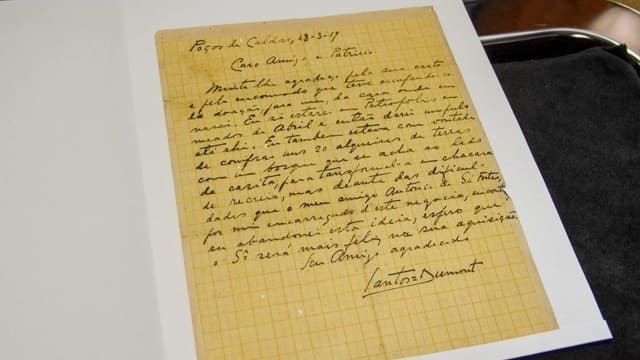 Poços de Caldas, 18-3-19
Caro Amigo e Patricio
Muito lhe agradeço pela sua carta
e pelo encomodo que teve occupando-se
da doação para mim, da casa onde eu
nasci. Eu só estarei em Petropolis em
meados de Abril e então darei um pulo
até ahi. Eu tambem estava com vontade
de comprar uns 20 alqueires de terras
com um bosque que se acha ao lado
da casita, para transformal-a em chacara
de recreio, mas deante das difficul-
dades que o meu amigo Antonio de Sá Fortes,
por mim encarregado d'este negocio, encontrou
eu abandonei esta ideia, espero que
o Sr será mais feliz na sua aquisição.
Seu Amigo agradecido
Santos=Dumont